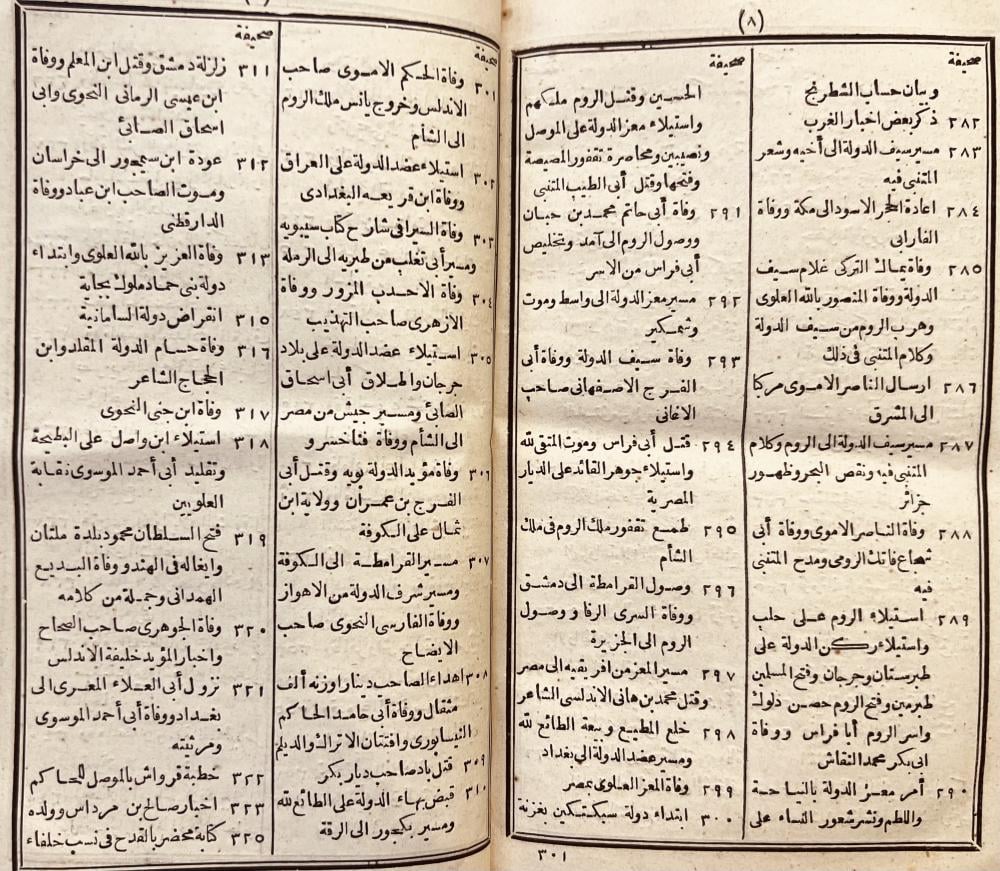 (٨)
صحيفة
وبيان حساب الشطرنج
٢٨٢ ذكر بعض اخبار الغرب
٢٨٣ مسير سيف الدولة الى أخيه وشعر
المتنبي فيه
٢٨٤ اعادة الحجر الاسود الى مكة ووفاة
الفارابى
٢٨٥ وفاة يماك التركى غلام سيف
الدولة ووفاة المنصور بالله العلوى
وهرب الروم من سيف الدولة
وكلام المتنبى فى ذلك
٢٨٦ ارسال الناصر الاموى مركبا
الى المشرق
٢٨٧ مسير سيف الدولة الى الروم وكلام
المتنبى فيه ونقص البحر وظهور
جزائر
٢٨٨ وفاة الناصر الاموى ووفاة أبى
شجاع فاتك الرومى ومدح المتنبى
فيه
٢٨٩ استيلاء الروم على حلب
واستيلاء ركن الدولة على
طبرستان وجرجان وفتح المسلمين
طبرمين وفتح الروم حصن دلوك
واسر الروم أبا فراس ووفاة
ابى بكر محمد النقاش
٢٩٠ أمر معز الدولة بالنياحة
واللطم ونشر شعور النساء على
صحيفة
الحسين وقتل الروم ملكهم
واستيلاء معز الدولة على الموصل
ونصيبين ومحاصرة تقفور المصيصة
وفتحها وقتل أبى الطيب المتنبى
٢٩١ وفاة أبى حاتم محمد بن حبان
ووصول الروم الى آمد وتخليص
أبى فراس من الاسر
٢٩٢ مسير معز الدولة الى واسط وموت
وشمكير
٢٩٣ وفاة سيف الدولة ووفاة أبى
الفرج الاصفهانى صاحب
الاغانى
٢٩٤ قتل أبى فراس وموت المتقى لله
واستيلاء جوهر القائد على الديار
المصرية
٢٩٥ طمع تقفور ملك الروم فى ملك
الشأم
٢٩٦ وصول القرامطة الى دمشق
ووفاة السرى الرفا ووصول
الروم الى الجزيرة
٢٩٧ مسير المعز من افريقيه الى مصر
وقتل محمد بن هانى الاندلسى الشاعر
٢٩٨ خلع المطيع وبيعة الطائع لله
ومسير عضد الدولة الى بغداد
٢٩٩ وفاة المعز العلوى بمصر
٣٠٠ ابتداء دولة سبكتكين بغزنة
٣٠١
صحيفة
٣٠١ وفاة الحكم الاموى صاحب
الاندلس وخروج يانس ملك الروم
الى الشأم
٣٠٢ استيلاء عضد الدولة على العراق
ووفاة ابن قريعه البغدادى
٣٠٣ وفاة السيرافى شارح كتاب سيبويه
ومسير أبى تغلب من طبريه الى الرملة
٣٠٤ وفاة الاحدب المزور ووفاة
الازهرى صاحب التهذيب
٣٠٥ استيلاء عضد الدولة على بلاد
جرجان واطلاق أبى اسحاق
الصابئ ومسير جيش من مصر
الى الشأم ووفاة فناخسرو
٣٠٦ وفاة مؤيد الدولة بويه وقتل أبى
الفرج بن عمران وولاية ابن
ثمال على الكوفة
٣٠٧ مسير القرامطة الى الكوفة
ومسير شرف الدولة من الاهواز
ووفاة الفارسى النحوى صاحب
الايضاح
٣٠٨ اهداء الصاحب دينارا وزنه ألف
مثقال ووفاة أبى حامد الحاكم
النيسابورى واقتتان الاتراك والديلم
٣٠٩ قتل باد صاحب ديار بكر
٣١٠ قبض بهاء الدولة على الطائع لله
ومسير بكجور الى الرقة
صحيفة
٣١١ زلزلة دمشق وقتل ابن المعلم ووفاة
ابن عيسى الرمانى النحوى وابى
اسحاق الصابئ
٣١٢ عودة ابن سيمجور الى خراسان
وموت الصاحب ابن عباد ووفاة
الدارقطنى
٣١٣ وفاة العزيز بالله العلوى وابتداء
دولة بنى حماد ملوك بجاية
٣١٥ انقراض دولة السامانية
٣١٦ وفاة حسام الدولة المقلد وابن
الحجاج الشاعر
٣١٧ وفاة ابن جنى النحوى
٣١٨ استيلاء ابن واصل على البطيحة
وتقليد أبى أحمد الموسوى نقابة
العلويين
٣١٩ فتح السلطان محمود بلدة ملتان
وايغاله فى الهند ووفاة البديع
الهمدانى وجملة من كلامه
٣٢٠ وفاة الجوهرى صاحب الصحاح
واخبار المؤيد خليفة الاندلس
٣٢١ نزول أبى العلاء المعرى الى
بغداد ووفاة أبى أحمد الموسوى
ومرثيته
٣٢٢ خطبة قرواش بالموصل للحاكم
٣٢٣ اخبار صالح بن مرداس وولده
٣٢٥ كتابة محضر بالقدح فى نسب خلفاء